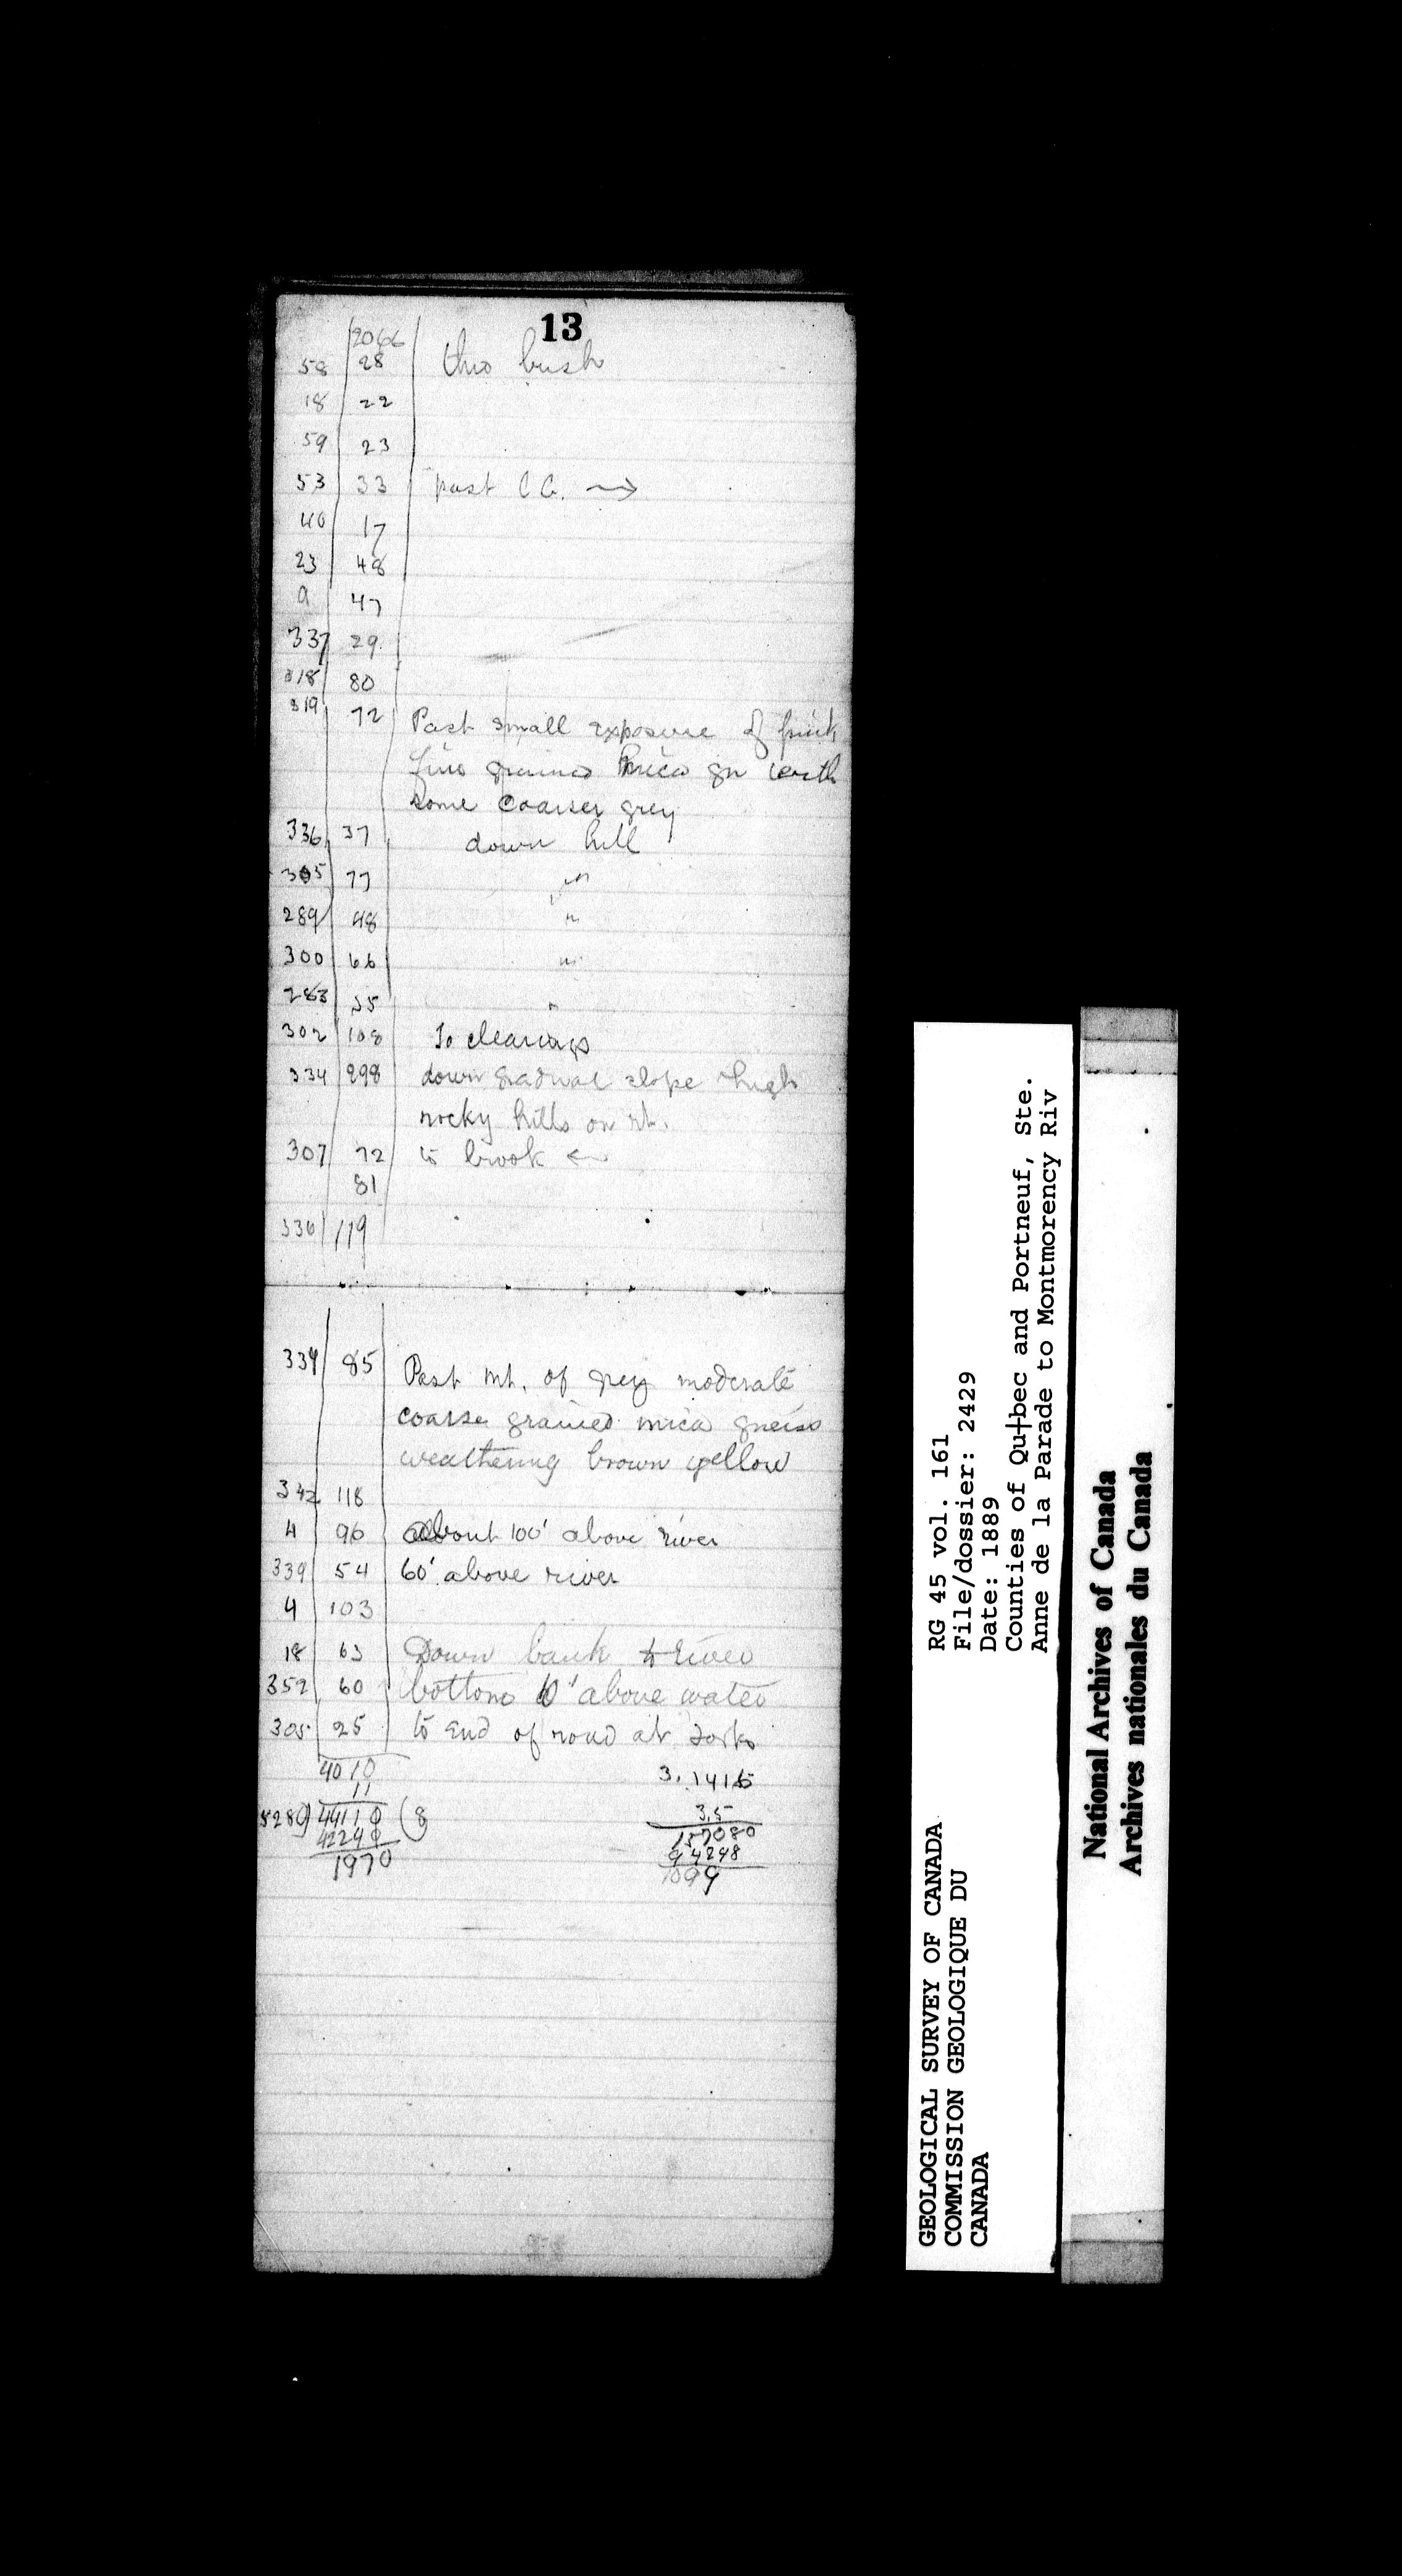 13
2066
58 28 thro bush
18 22
59 23
53 33 past C C. →
40 17
23 48
9 47
337 29
318 80
319 72 Past small exposure of pink
fine grained mica gn with
some coarser grey
336 37 down hill
305 77 "
289 48 "
300 66 "
283 55 "
302 108 To clearings
334 298 down gradual slope high
rocky hills on rt.
307 72 to brook ←
81
336 119
339 85 Past mt. of grey moderate
coarse grained mica gneiss
weathering brown yellow
342 118
4 96 about 100' above river
339 54 60' above river
4 103
18 63 Down bank to river
352 60 bottom 10' above water
305 25 to End of road at Forks
4010
11
5280) 44110 (8
42240
1970
3.1416
3.5
157080
94248
1099
GEOLOGICAL SURVEY OF CANADA
COMMISSION GEOLOGIQUE DU
CANADA
RG 45 vol. 161
File/dossier: 2429
Date: 1889
Counties of Qu┼bec and Portneuf, Ste.
Anne de la Parade to Montmorency Riv
National Archives of Canada
Archives nationales du Canada